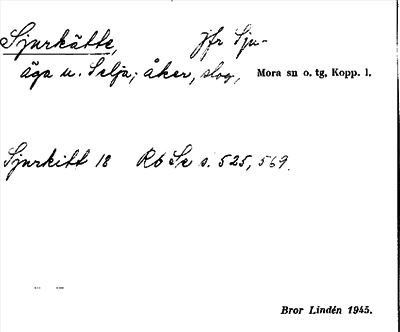 Sjurkätte, Jfr Sju-
äga u. Selja; åker, slog, Mora sn o. tg, Kopp. l.
Sjurkitt 18 Rb Sk s. 525, 569.
Bror Lindén 1945.